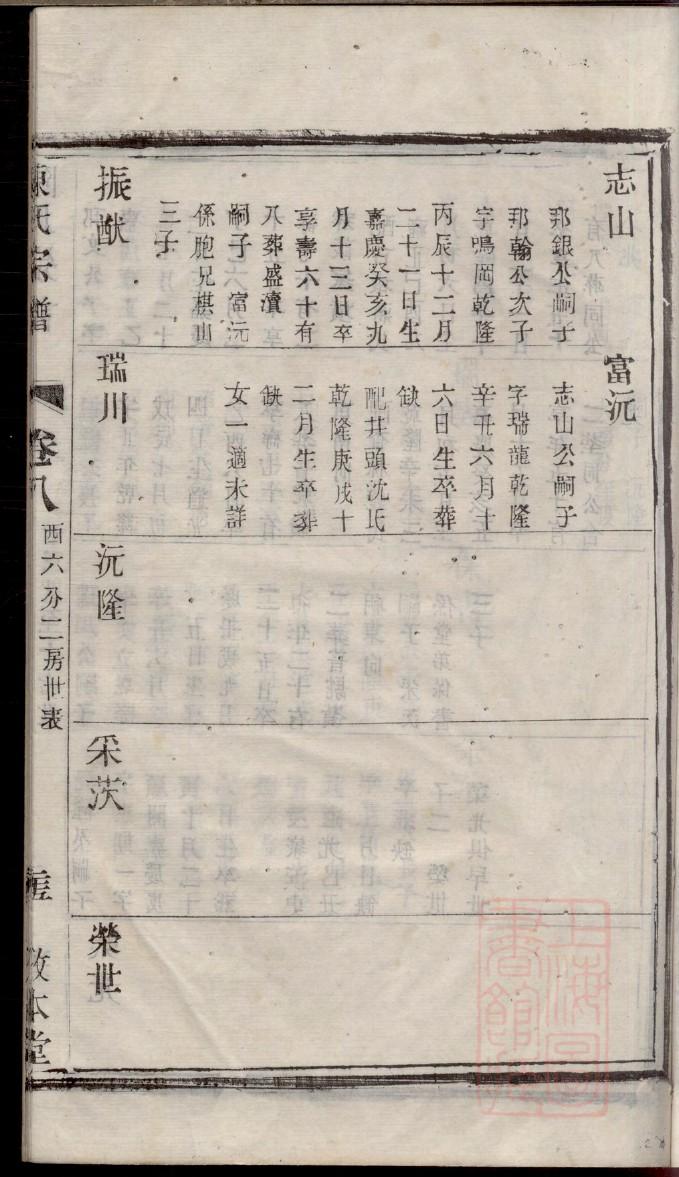 志山
邦銀公嗣子
邦翰公次子
字鳴岡乾隆
丙辰十二月
二十一日生
嘉慶癸亥九
月十三日卒
享壽六十有
八葬盛瀆
嗣子 富沅
係胞兄棋山
三子
振猷
富沅
志山公嗣子
字瑞龍乾隆
辛丑六月十
六日生卒葬
缺
配井頭沈氏
乾隆庚戌十
二月生卒葬
缺
女一適未詳
瑞川
沅隆
采茨
榮世
陳氏宗譜
卷八
西六分二房世表
敦本堂
上海圖書館藏